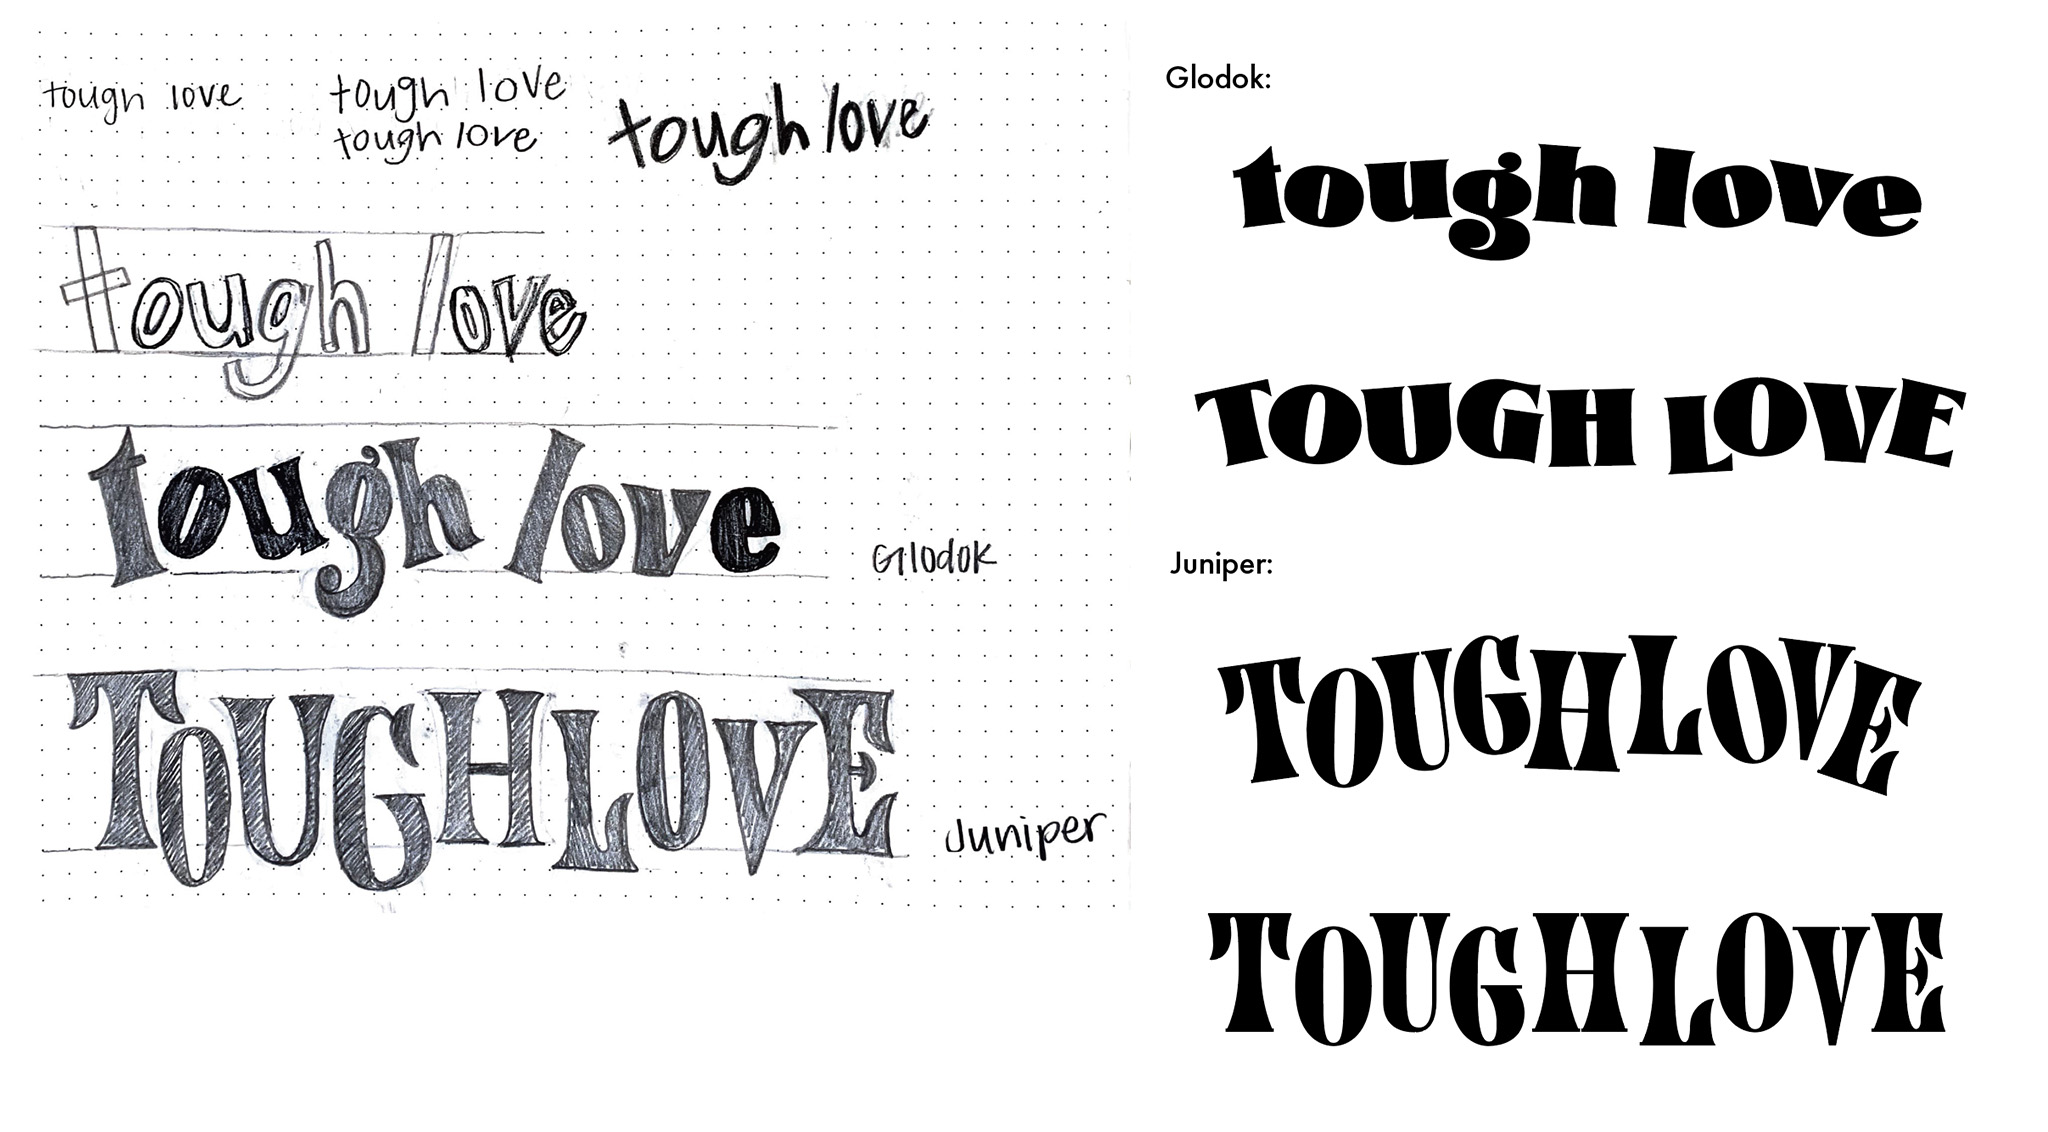 tough love
tough love
tough love
tough love
tough love
tough love
Glodok
TOUGH LOVE
Juniper
Glodok:
tough love
TOUGH LOVE
Juniper:
TOUGH LOVE
TOUGH LOVE